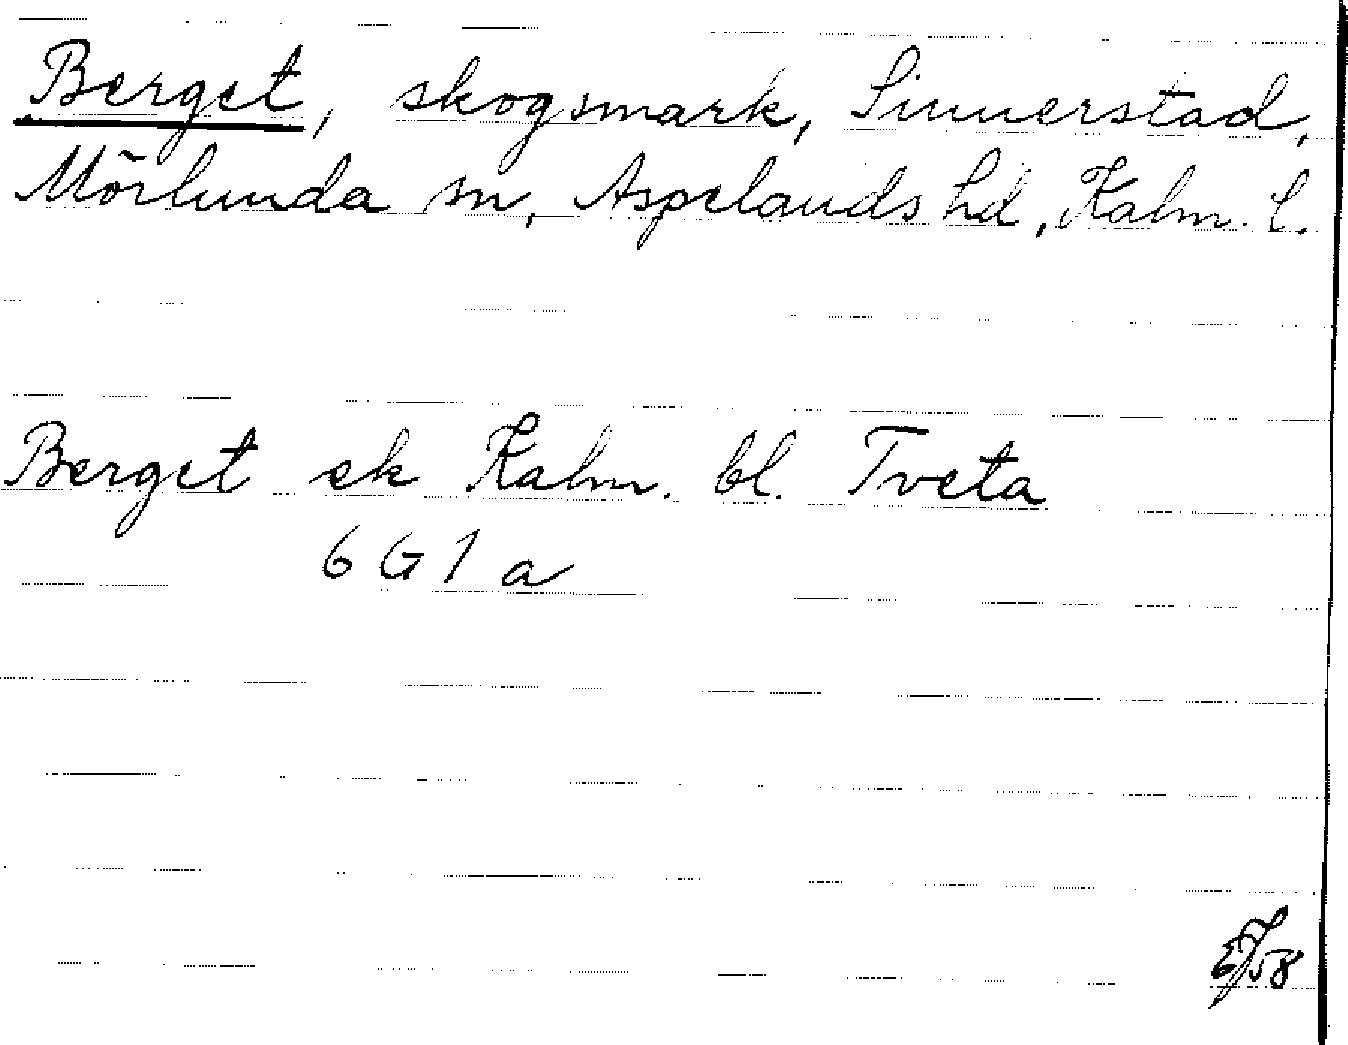 Berget, skogsmark, Sinnerstad,
Mörlunda sn, Aspelands hd, Kalm. l.
Berget ek Kalm. bl. Tveta
6 G 1 a